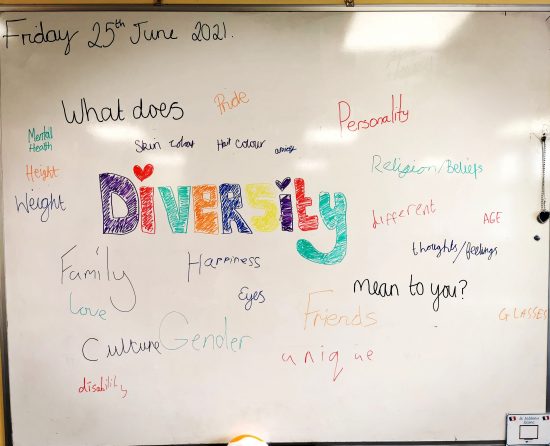 Friday 25th June 2021.
What does
Pride
Personality
Mental
Health
Skin colour
Hair Colour
anxiety
Religion/Beliefs
Height
Weight
DIVERSity
different
AGE
thoughts/feelings
Family
Happiness
Eyes
mean to you?
Love
Friends
GLASSES
Culture
Gender
unique
disability